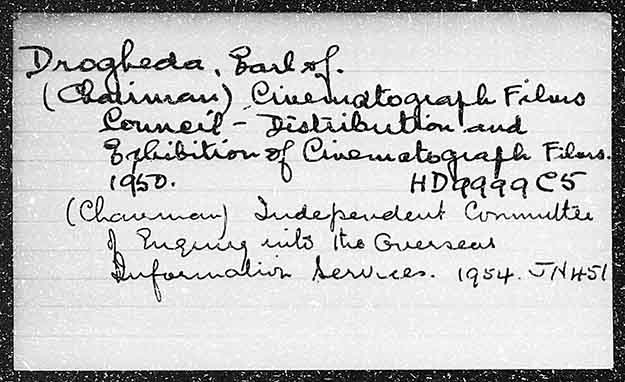 Drogheda, Earl of.
(Chairman) Cinematograph Films
Council - Distribution and
Exhibition of Cinematograph Films.
1950. HD9999C5
(Chairman) Independent Committee
of Enquiry into the Overseas
Information Services. 1954. JN451